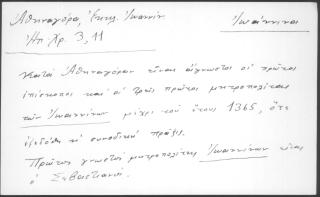 Ἀθηναγόρα, Ἐκκλ. Ἰωαννίν. Ἰωάννινα
Ἠπ. Χρ. 3, 11
Κατὰ Ἀθηναγόραν εἶναι ἄγνωστοι οἱ πρῶτοι
ἐπίσκοποι καὶ οἱ τρεῖς πρῶτοι μητροπολίτες
τῶν Ἰωαννίνων μέχρι τοῦ ἔτους 1365, ὅτε
ἐξεδόθη ἡ συνοδικὴ πρᾶξις.
Πρῶτος γνωστὸς μητροπολίτης Ἰωαννίνων εἶναι
ὁ Σεβαστιανός.